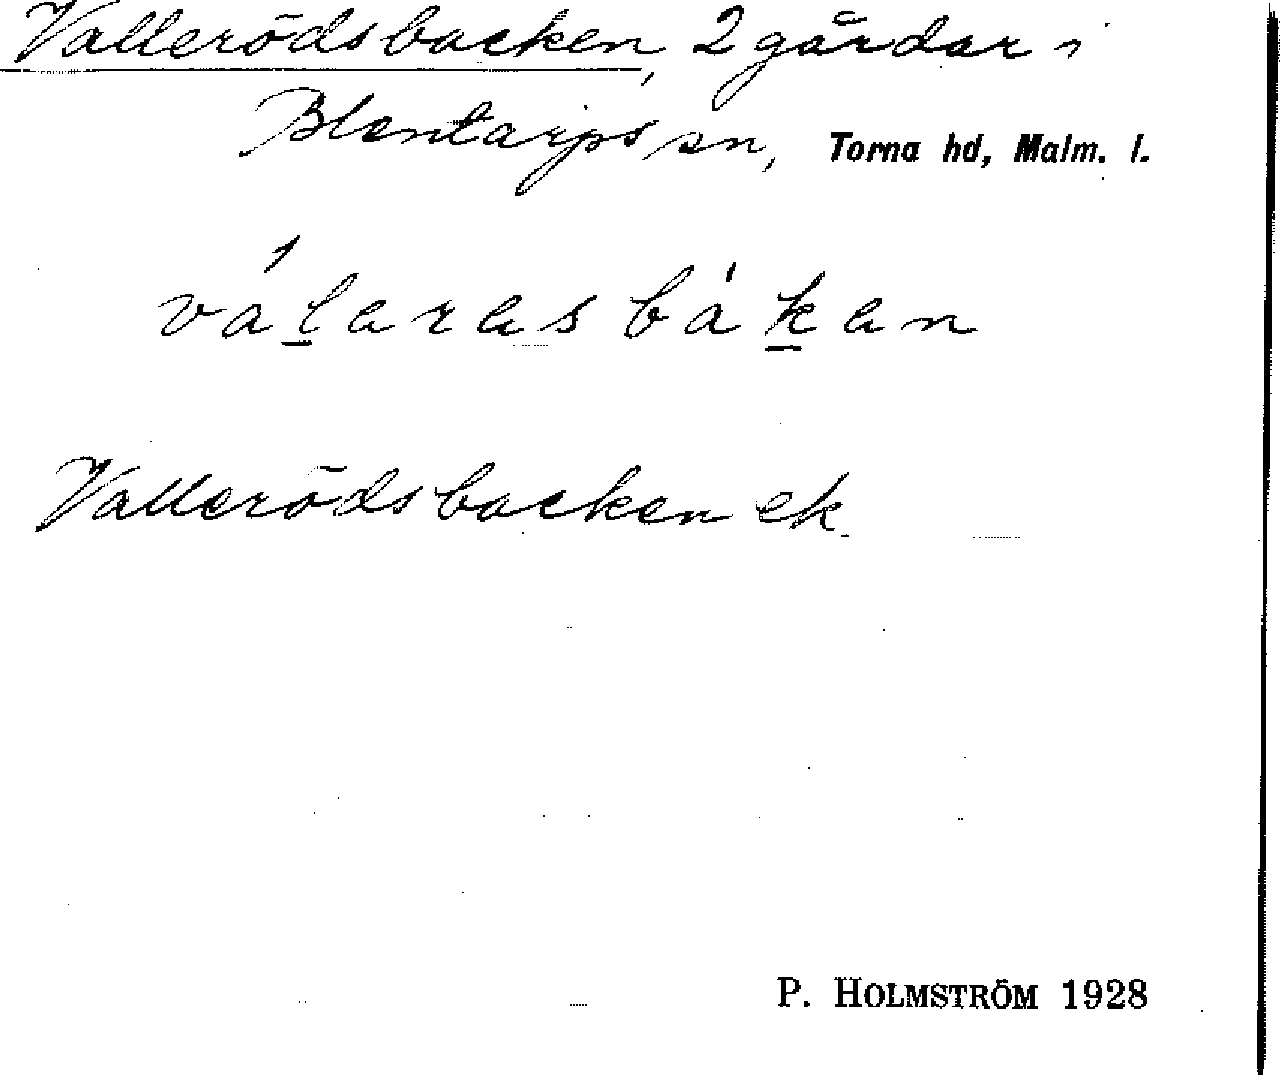 Vallerödsbacken, 2 gårdar i
Blentarps sn, Torna hd, Malm. l.
válarasbákan
Vallerödsbacken ek.
P. HOLMSTRÖM 1928